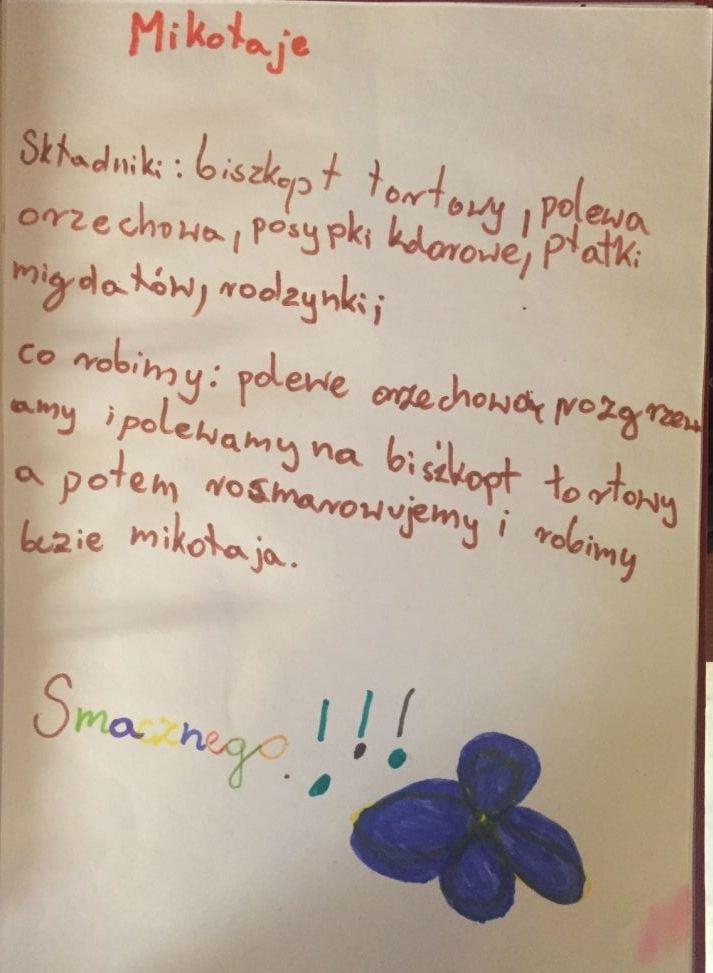 Mikołaje
Składniki: biszkopt tortowy, polewa
orzechowa, posypki kolorowe, płatki
migdałów, rodzynki;
co robimy: polewe orzechową rozgrzew
amy i polewamy na biszkopt tortowy
a potem rosmarowujemy i robimy
buzie mikołaja.
Smacznego!!!